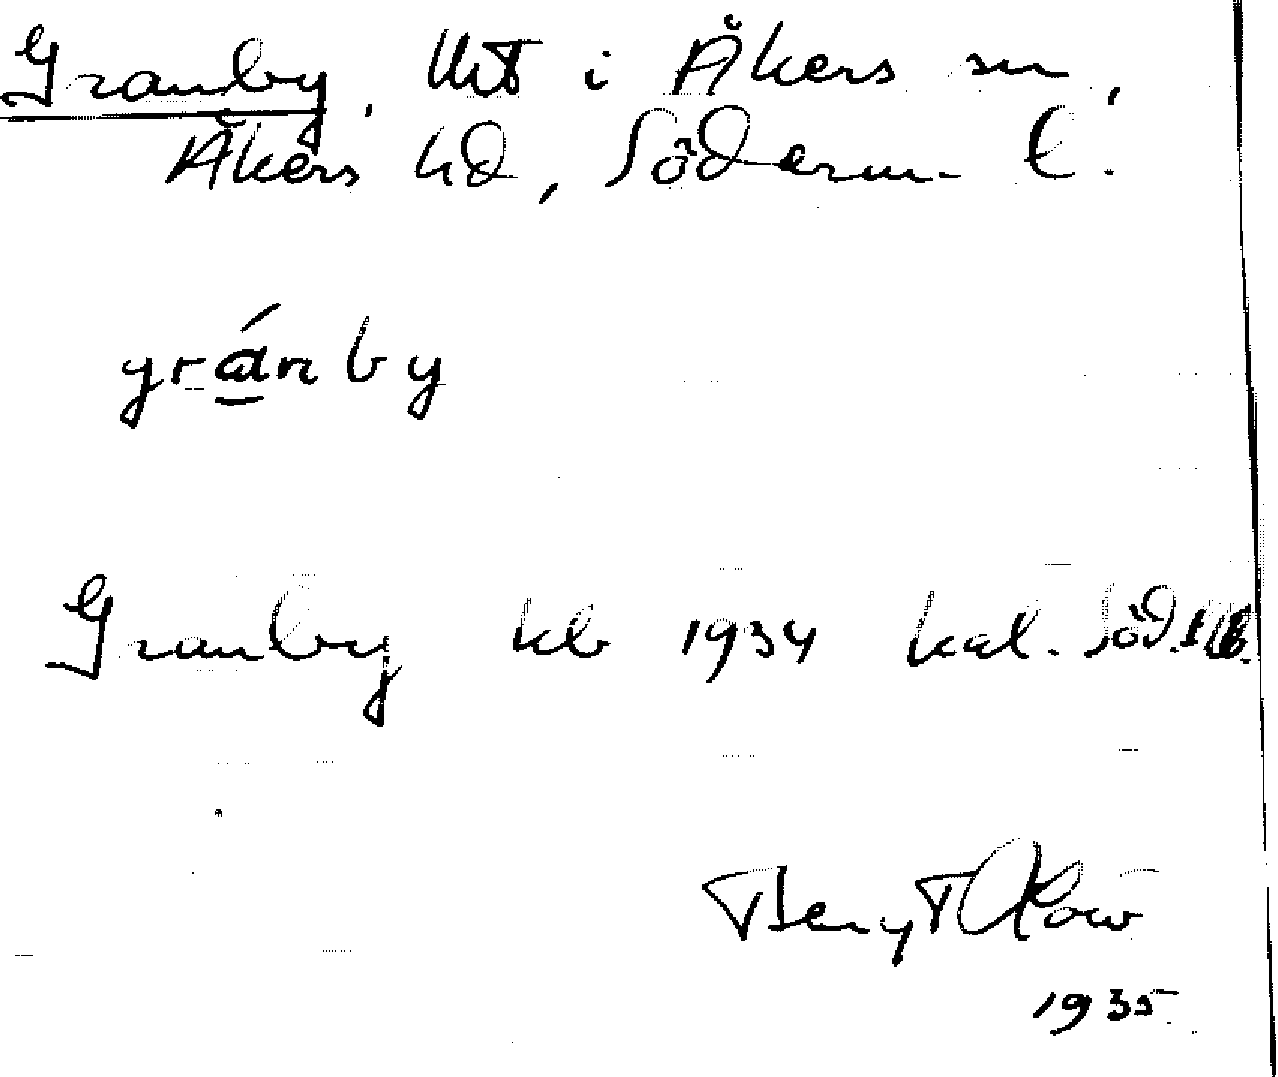 Granby, i Åkers sn,
Åkers hd, Söderm. l.
gránby
Granby kb 1934 kal. Söd.
Bengt
1935